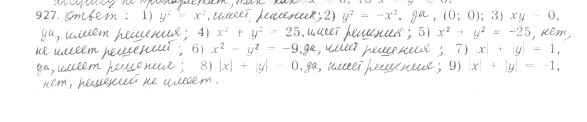 927. Ответ: 1) y² = x², имеет решения; 2) y² = -x², да, (0; 0); 3) xy = 0,
да, имеет решения; 4) x² + y² = 25, имеет решения; 5) x² + y² = -25, нет,
не имеет решений; 6) x² - y² = -9, да, имеет решения; 7) |x| + |y| = 1,
да, имеет решения; 8) |x| + |y| = 0, да, имеет решения; 9) |x| + |y| = -1,
нет, решений не имеет.